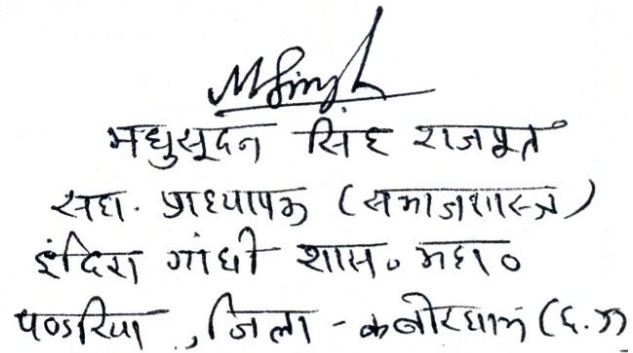 MSingh
मधुसूदन सिंह राजपूत
सहा. प्राध्यापक (समाजशास्त्र)
इंदिरा गांधी शास० महा०
पण्डरिया, जिला - कबीरधाम (छ.ग